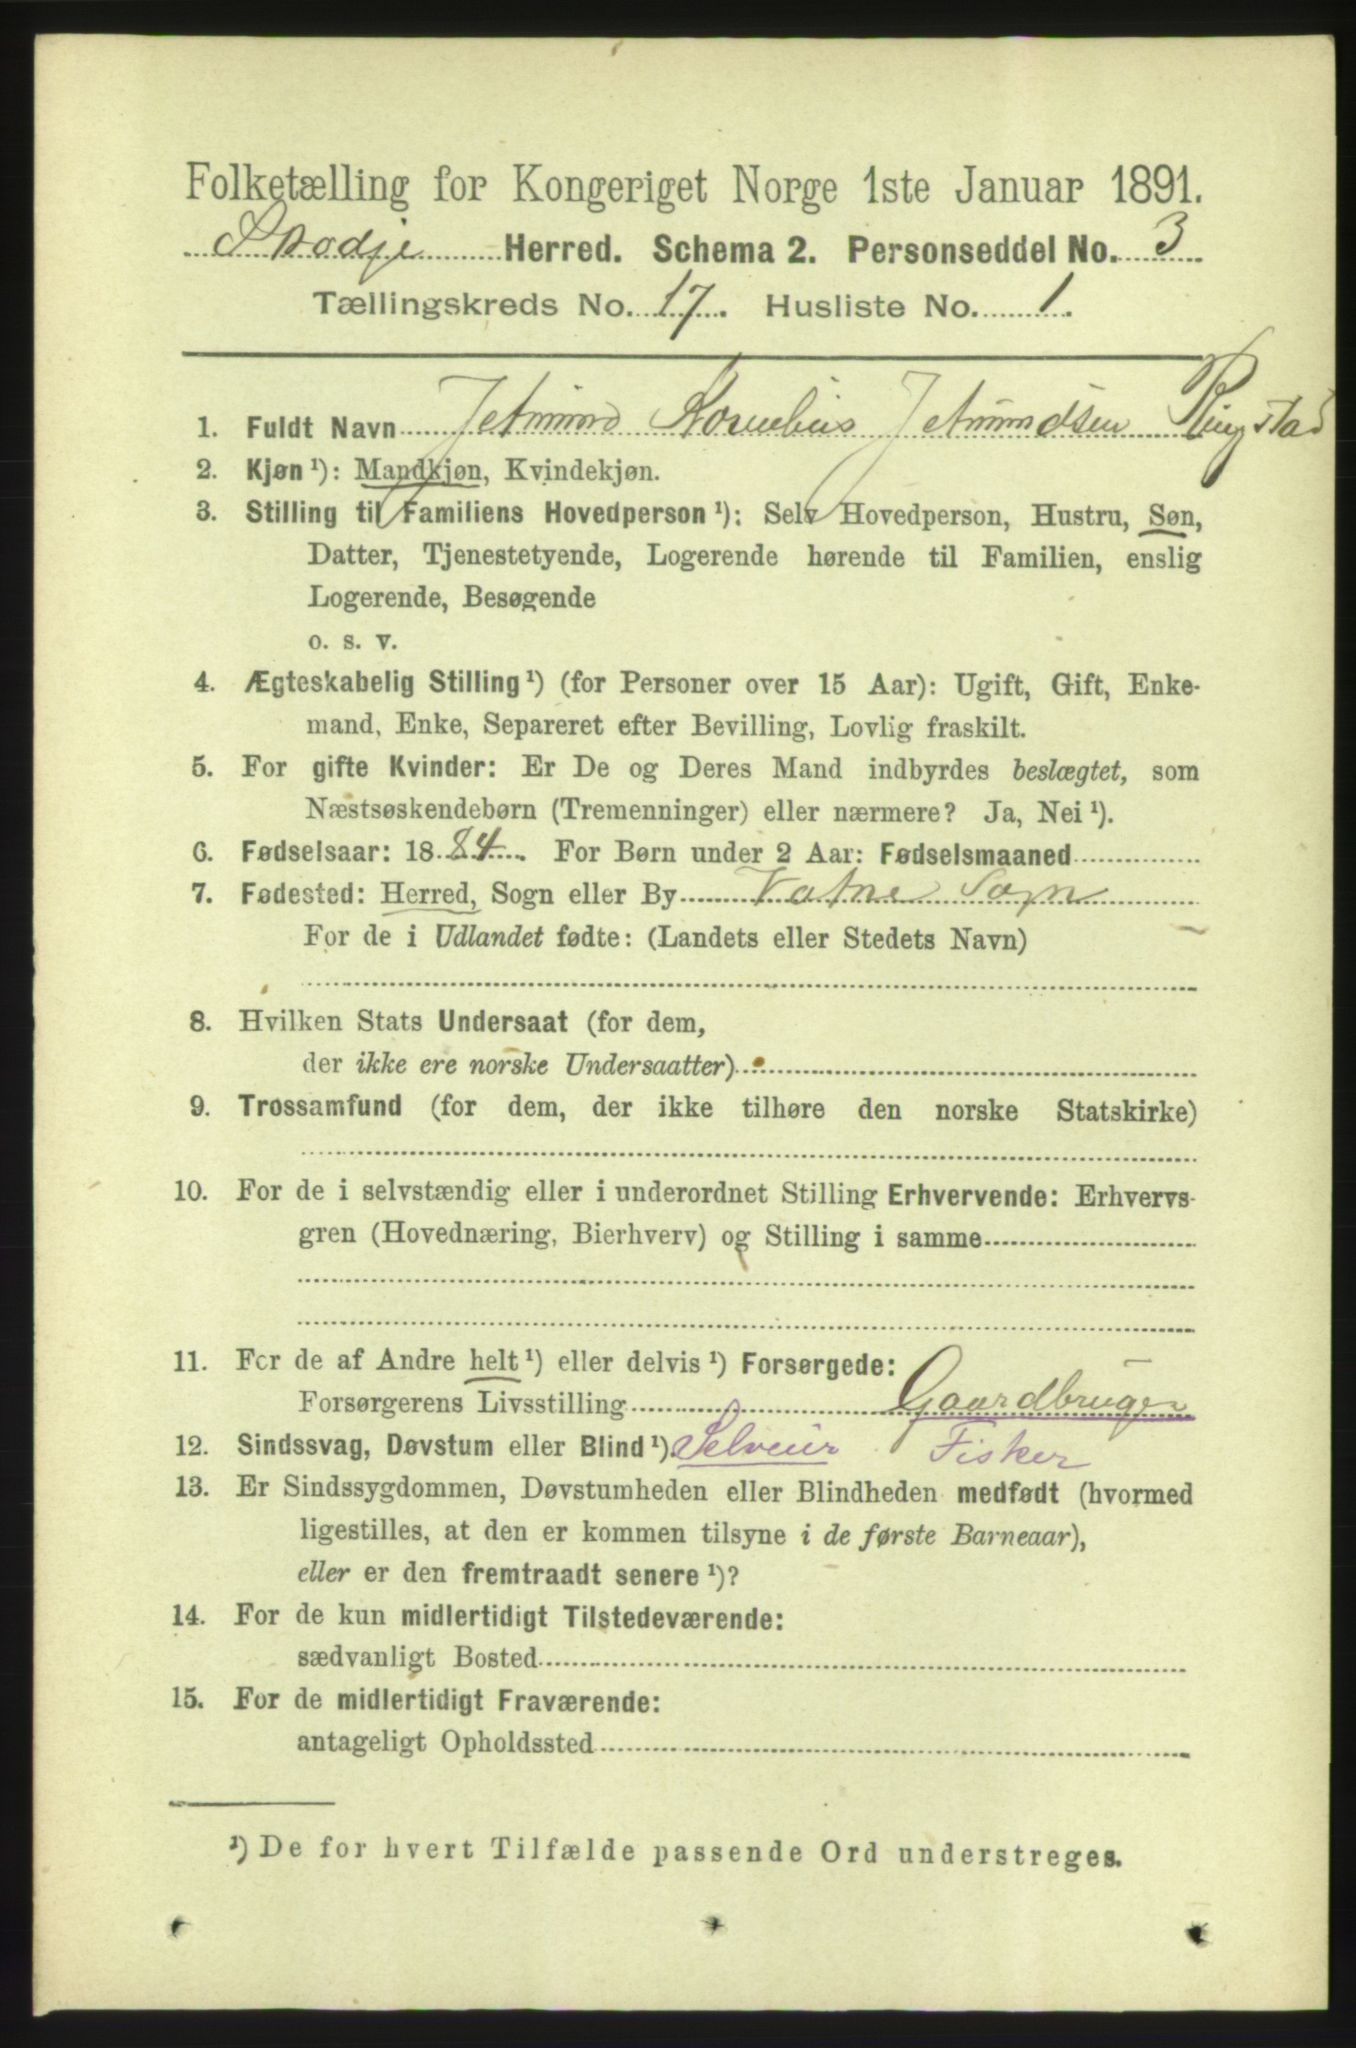 Folketælling for Kongeriget Norge 1ste Januar 1891.
Skodje Herred. Schema 2. Personseddel No. 3
Tællingskreds No. 17. Husliste No. 1.
1. Fuldt Navn Jetmund Kornelius Jetmundsen Ringstad
2. Kjøn ¹): Mandkjøn, Kvindekjøn.
3. Stilling til Familiens Hovedperson ¹): Selv Hovedperson, Hustru, Søn,
Datter, Tjenestetyende, Logerende hørende til Familien, enslig
Logerende, Besøgende
o. s. v.
4. Ægteskabelig Stilling ¹) (for Personer over 15 Aar): Ugift, Gift, Enke-
mand, Enke, Separeret efter Bevilling, Lovlig fraskilt.
5. For gifte Kvinder: Er De og Deres Mand indbyrdes beslægtet, som
Næstsøskendebørn (Tremenninger) eller nærmere? Ja, Nei ¹).
6. Fødselsaar: 1884. For Børn under 2 Aar: Fødselsmaaned
7. Fødested: Herred, Sogn eller By Vatne Sogn
For de i Udlandet fødte: (Landets eller Stedets Navn)
8. Hvilken Stats Undersaat (for dem,
der ikke ere norske Undersaatter)
9. Trossamfund (for dem, der ikke tilhøre den norske Statskirke)
10. For de i selvstændig eller i underordnet Stilling Erhvervende: Erhvervs-
gren (Hovednæring, Bierhverv) og Stilling i samme
11. For de af Andre helt ¹) eller delvis ¹) Forsørgede:
Forsørgerens Livsstilling Gaardbruger
12. Sindssvag, Døvstum eller Blind ¹). Selveier Fisker
13. Er Sindssygdommen, Døvstumheden eller Blindheden medfødt (hvormed
ligestilles, at den er kommen tilsyne i de første Barneaar),
eller er den fremtraadt senere ¹)?
14. For de kun midlertidigt Tilstedeværende:
sædvanligt Bosted
15. For de midlertidigt Fraværende:
antageligt Opholdssted
¹) De for hvert Tilfælde passende Ord understreges.